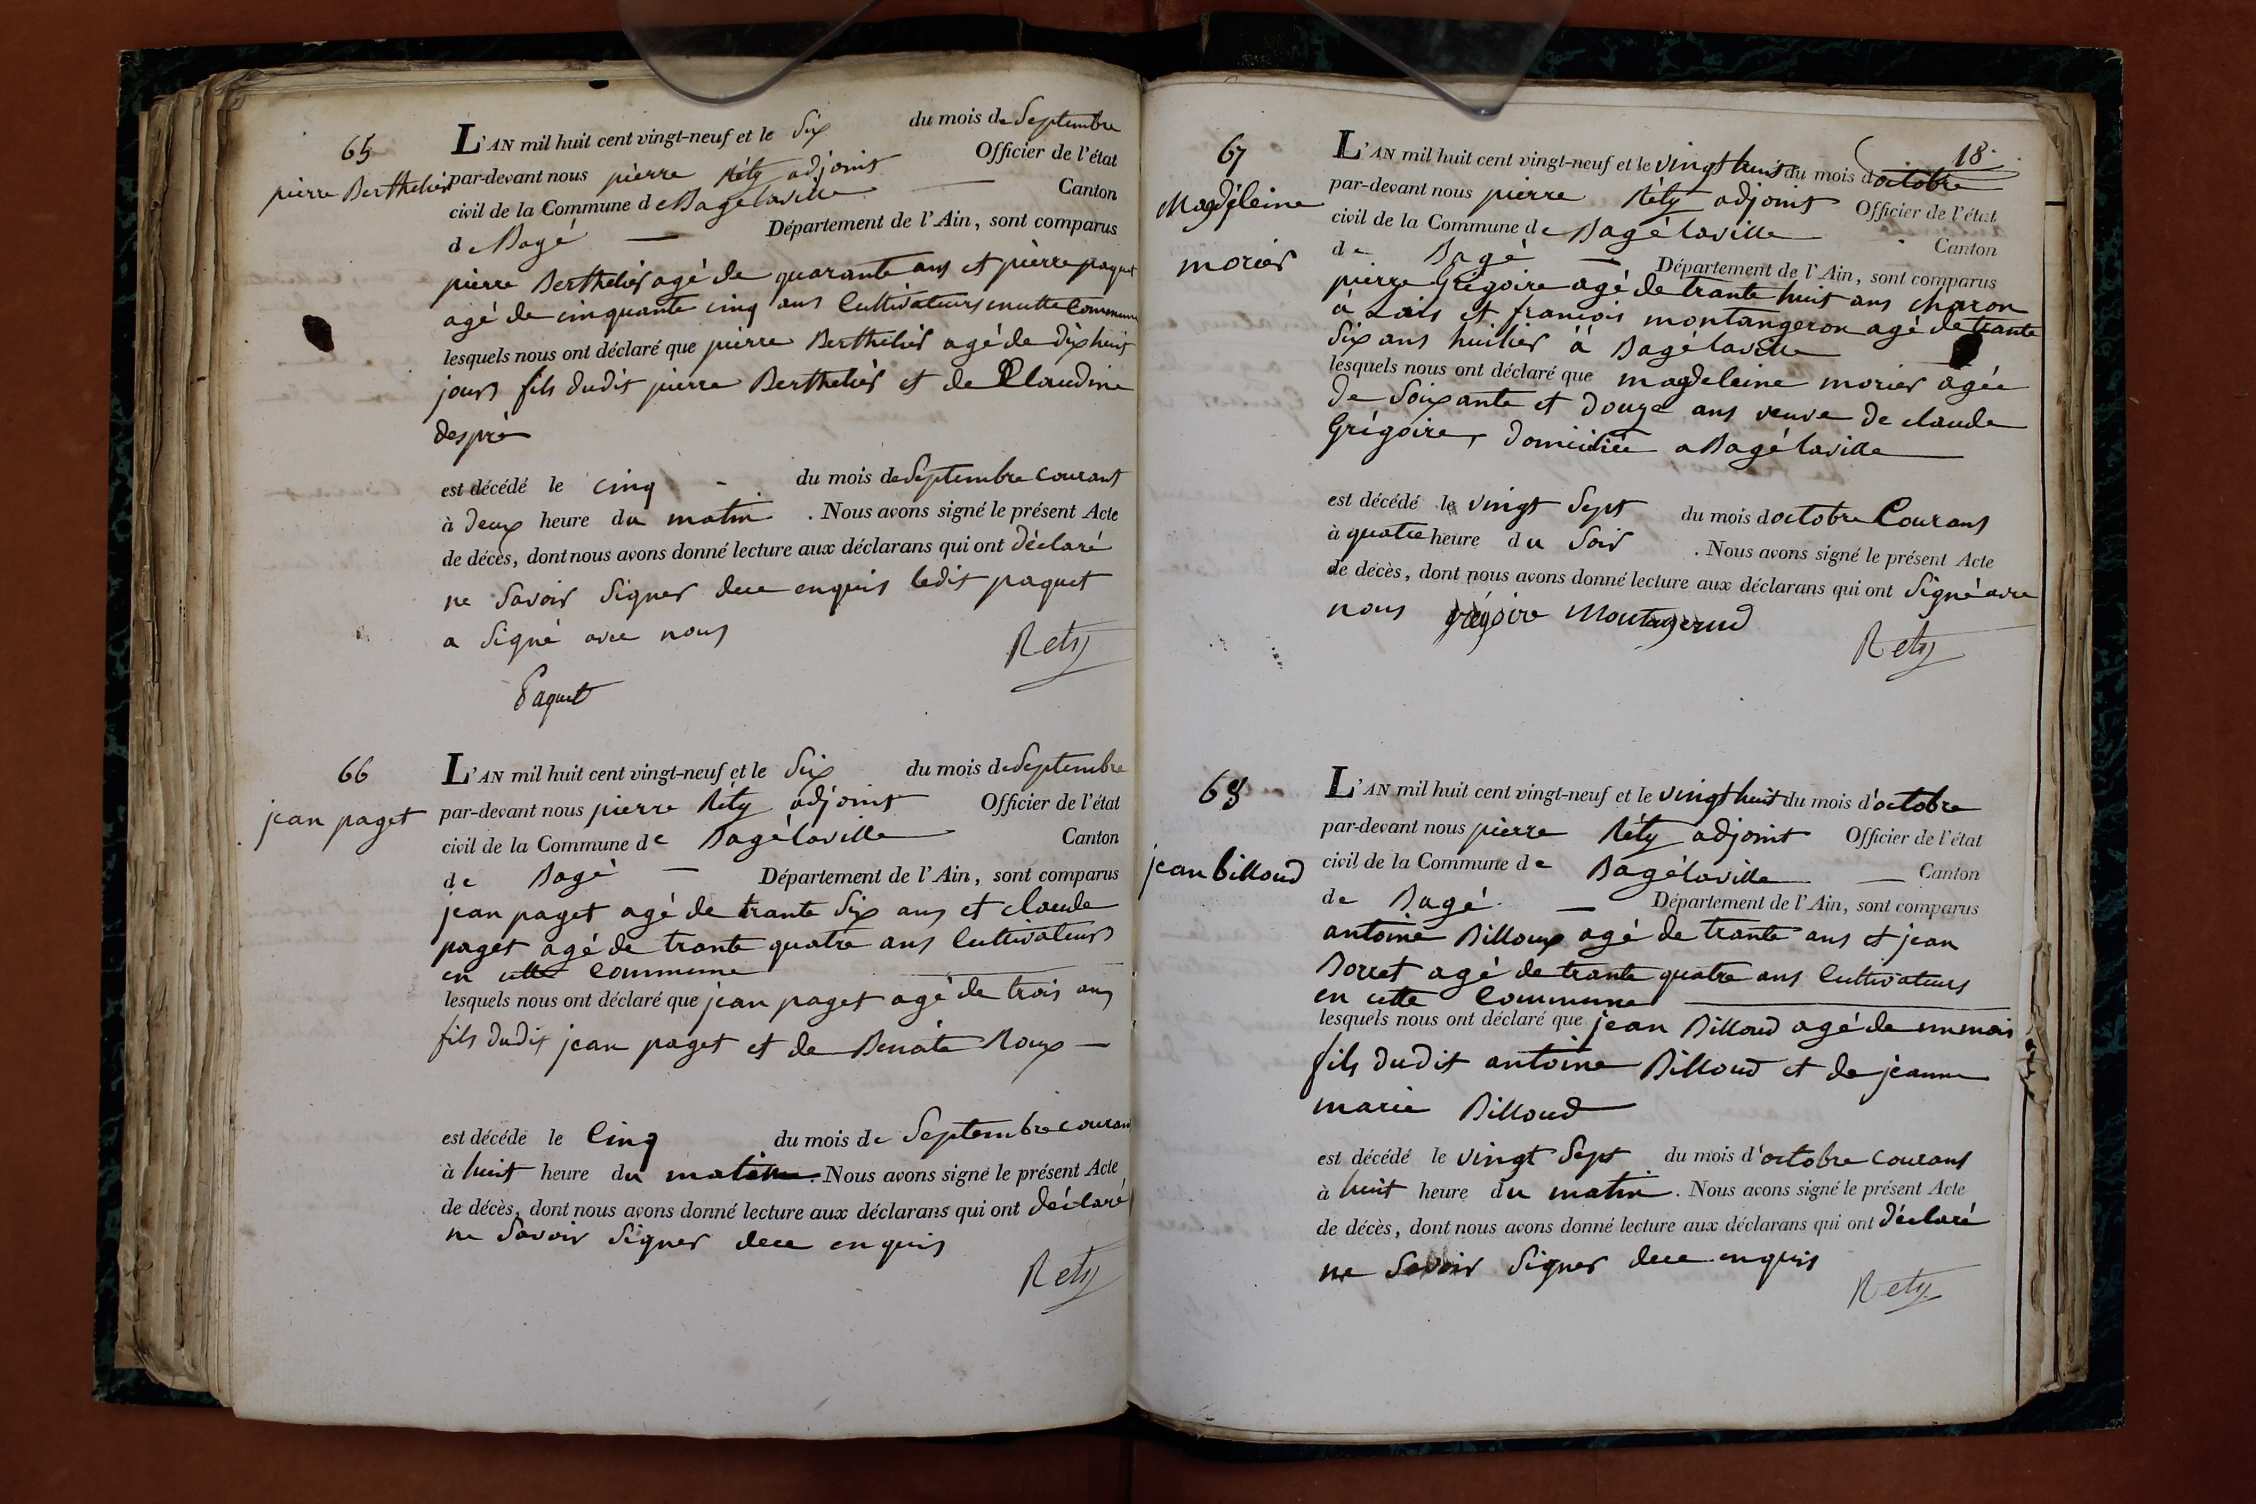 65
pierre Berthelier
L'AN mil huit cent vingt-neuf et le Six du mois de Septembre
par-devant nous pierre Réty adjoint Officier de l'état
civil de la Commune de Bagélaville Canton
de Bagé — Département de l'Ain, sont comparus
pierre Berthelier agé de quarante ans et pierre paquet
agé de cinquante cinq ans Cultivateurs en cette Commune
lesquels nous ont déclaré que pierre Berthelier agé de dix huit
jours fils dudit pierre Berthelier et de Claudine
despré
est décédé le cinq du mois de Septembre courant
à deux heure du matin . Nous avons signé le présent Acte
de décès, dont nous avons donné lecture aux déclarans qui ont déclaré
ne Savoir Signer de ce enquis ledit paquet
a Signé avec nous
Rety
Paquet
66
jean paget
L'AN mil huit cent vingt-neuf et le Six du mois de Septembre
par-devant nous pierre Réty adjoint Officier de l'état
civil de la Commune de Bagélaville Canton
de Bagé — Département de l'Ain, sont comparus
jean paget agé de trante Six ans et claude
paget agé de trante quatre ans Cultivateurs
en cette Commune
lesquels nous ont déclaré que jean paget agé de trois ans
fils dudit jean paget et de Benoite Roux —
est décédé le Cinq du mois de Septembre courant
à huit heure du matin . Nous avons signé le présent Acte
de décès, dont nous avons donné lecture aux déclarans qui ont déclaré
ne Savoir Signer de ce enquis
Rety
18.
67
Magdeleine
morier
L'AN mil huit cent vingt-neuf et le vingt huit du mois d octobre
par-devant nous pierre Réty adjoint Officier de l'état
civil de la Commune de Bagélaville Canton
de Bagé — Département de l'Ain, sont comparus
pierre Grégoire agé de trante huit ans charon
à et francois montangeron agé de trante
Six ans huilier à Bagélaville
lesquels nous ont déclaré que magdeleine morier agée
de Soixante et douze ans veuve de claude
Grégoire, domiciliée a Bagélaville
est décédé le vingt Sept du mois d octobre Courant
à quatre heure du Soir . Nous avons signé le présent Acte
de décès, dont nous avons donné lecture aux déclarans qui ont Signé avec
nous grégoire
Rety
68
jean billoud
L'AN mil huit cent vingt-neuf et le vingt huit du mois d'octobre
par-devant nous pierre Réty adjoint Officier de l'état
civil de la Commune de Bagélaville — Canton
de Bagé — Département de l'Ain, sont comparus
antoine Billoux agé de trante ans et jean
Borret agé de trante quatre ans Cultivateurs
en cette Commune
lesquels nous ont déclaré que jean Billoud agé de un mois
fils dudit antoine Billoud et de jeanne
marie Billoud
est décédé le vingt Sept du mois d'octobre courant
à huit heure du matin . Nous avons signé le présent Acte
de décès, dont nous avons donné lecture aux déclarans qui ont déclaré
ne Savoir Signer de ce enquis
Rety